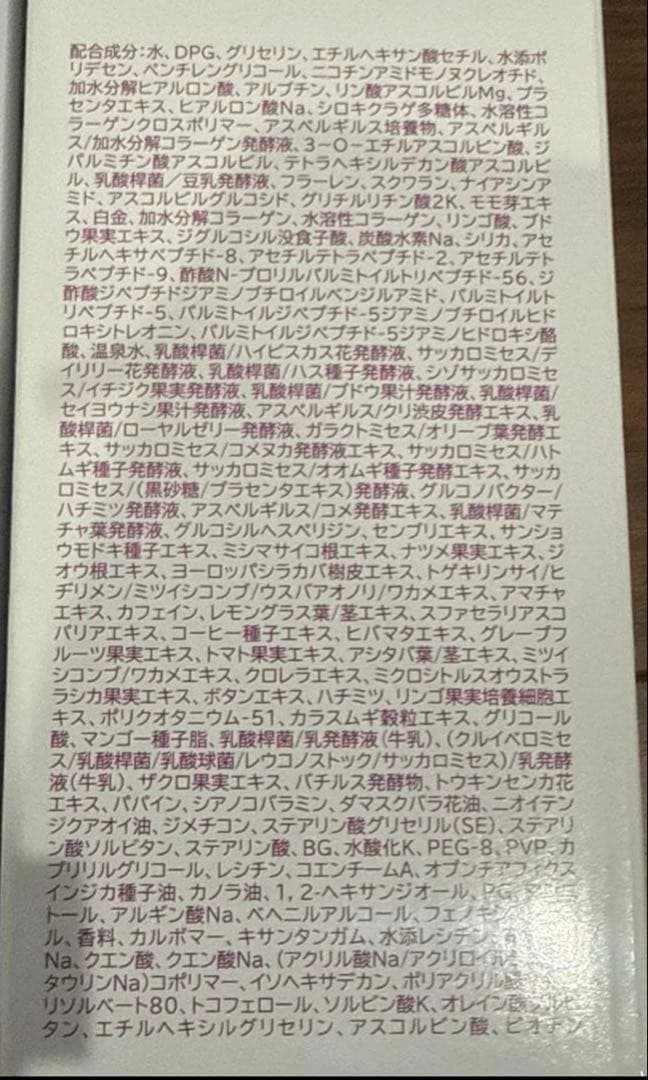 配合成分:水、DPG、グリセリン、エチルヘキサン酸セチル、水添ポ
リデセン、ペンチレングリコール、ニコチンアミドモノヌクレオチド、
加水分解ヒアルロン酸、アルブチン、リン酸アスコルビルMg、プラ
センタエキス、ヒアルロン酸Na、シロキクラゲ多糖体、水溶性コ
ラーゲンクロスポリマー、アスペルギルス培養物、アスペルギル
ス/加水分解コラーゲン発酵液、3-O-エチルアスコルビン酸、ジ
パルミチン酸アスコルビル、テトラヘキシルデカン酸アスコルビ
ル、乳酸桿菌/豆乳発酵液、フラーレン、スクワラン、ナイアシンア
ミド、アスコルビルグルコシド、グリチルリチン酸2K、モモ芽エキ
ス、白金、加水分解コラーゲン、水溶性コラーゲン、リンゴ酸、ブド
ウ果実エキス、ジグルコシル没食子酸、炭酸水素Na、シリカ、アセ
チルヘキサペプチド-8、アセチルテトラペプチド-2、アセチルテト
ラペプチド-9、酢酸N-プロリルパルミトイルトリペプチド-56、ジ
酢酸ジペプチドジアミノブチロイルベンジルアミド、パルミトイルト
リペプチド-5、パルミトイルジペプチド-5ジアミノブチロイルヒド
ロキシトレオニン、パルミトイルジペプチド-5ジアミノヒドロキシ酪
酸、温泉水、乳酸桿菌/ハイビスカス花発酵液、サッカロミセス/デ
イリリー花発酵液、乳酸桿菌/ハス種子発酵液、シゾサッカロミセ
ス/イチジク果実発酵液、乳酸桿菌/ブドウ果汁発酵液、乳酸桿菌/
セイヨウナシ果汁発酵液、アスペルギルス/クリ渋皮発酵エキス、乳
酸桿菌/ローヤルゼリー発酵液、ガラクトミセス/オリーブ葉発酵エ
キス、サッカロミセス/コメヌカ発酵液エキス、サッカロミセス/ハト
ムギ種子発酵液、サッカロミセス/オオムギ種子発酵エキス、サッカ
ロミセス/(黒砂糖/プラセンタエキス)発酵液、グルコノバクター/
ハチミツ発酵液、アスペルギルス/コメ発酵エキス、乳酸桿菌/マテ
チャ葉発酵液、グルコシルヘスペリジン、センブリエキス、サンショ
ウモドキ種子エキス、ミシマサイコ根エキス、ナツメ果実エキス、ジ
オウ根エキス、ヨーロッパシラカバ樹皮エキス、トゲキリンサイ/ヒ
ヂリメン/ミツイシコンブ/ウスバアオノリ/ワカメエキス、アマチャ
エキス、カフェイン、レモングラス葉/茎エキス、スファセラリアスコ
パリアエキス、コーヒー種子エキス、ヒバマタエキス、グレープフ
ルーツ果実エキス、トマト果実エキス、アシタバ葉/茎エキス、ミツイ
シコンブ/ワカメエキス、クロレラエキス、ミクロシトルスオウストラ
ラシカ果実エキス、ボタンエキス、ハチミツ、リンゴ果実培養細胞エ
キス、ポリクオタニウム-51、カラスムギ穀粒エキス、グリコール
酸、マンゴー種子脂、乳酸桿菌/乳発酵液(牛乳)、(クルイベロミセ
ス/乳酸桿菌/乳酸球菌/レウコノストック/サッカロミセス)/乳発酵
液(牛乳)、ザクロ果実エキス、バチルス発酵物、トウキンセンカ花
エキス、パパイン、シアノコバラミン、ダマスクバラ花油、ニオイテン
ジクアオイ油、ジメチコン、ステアリン酸グリセリル(SE)、ステアリ
ン酸ソルビタン、ステアリン酸、BG、水酸化K、PEG-8、PVP、カ
プリリルグリコール、レシチン、コエンチームA、オプンチアフィクス
インジカ種子油、カノラ油、1,2-ヘキサンジオール、PG、
トール、アルギン酸Na、ベヘニルアルコール、フェノキシ
ル、香料、カルボマー、キサンタンガム、水添レシチン、
Na、クエン酸、クエン酸Na、(アクリル酸Na/アクリロイル
タウリンNa)コポリマー、イソヘキサデカン、ポリアクリル酸
リソルベート80、トコフェロール、ソルビン酸K、オレイン酸ソルビ
タン、エチルヘキシルグリセリン、アスコルビン酸、ビオチン